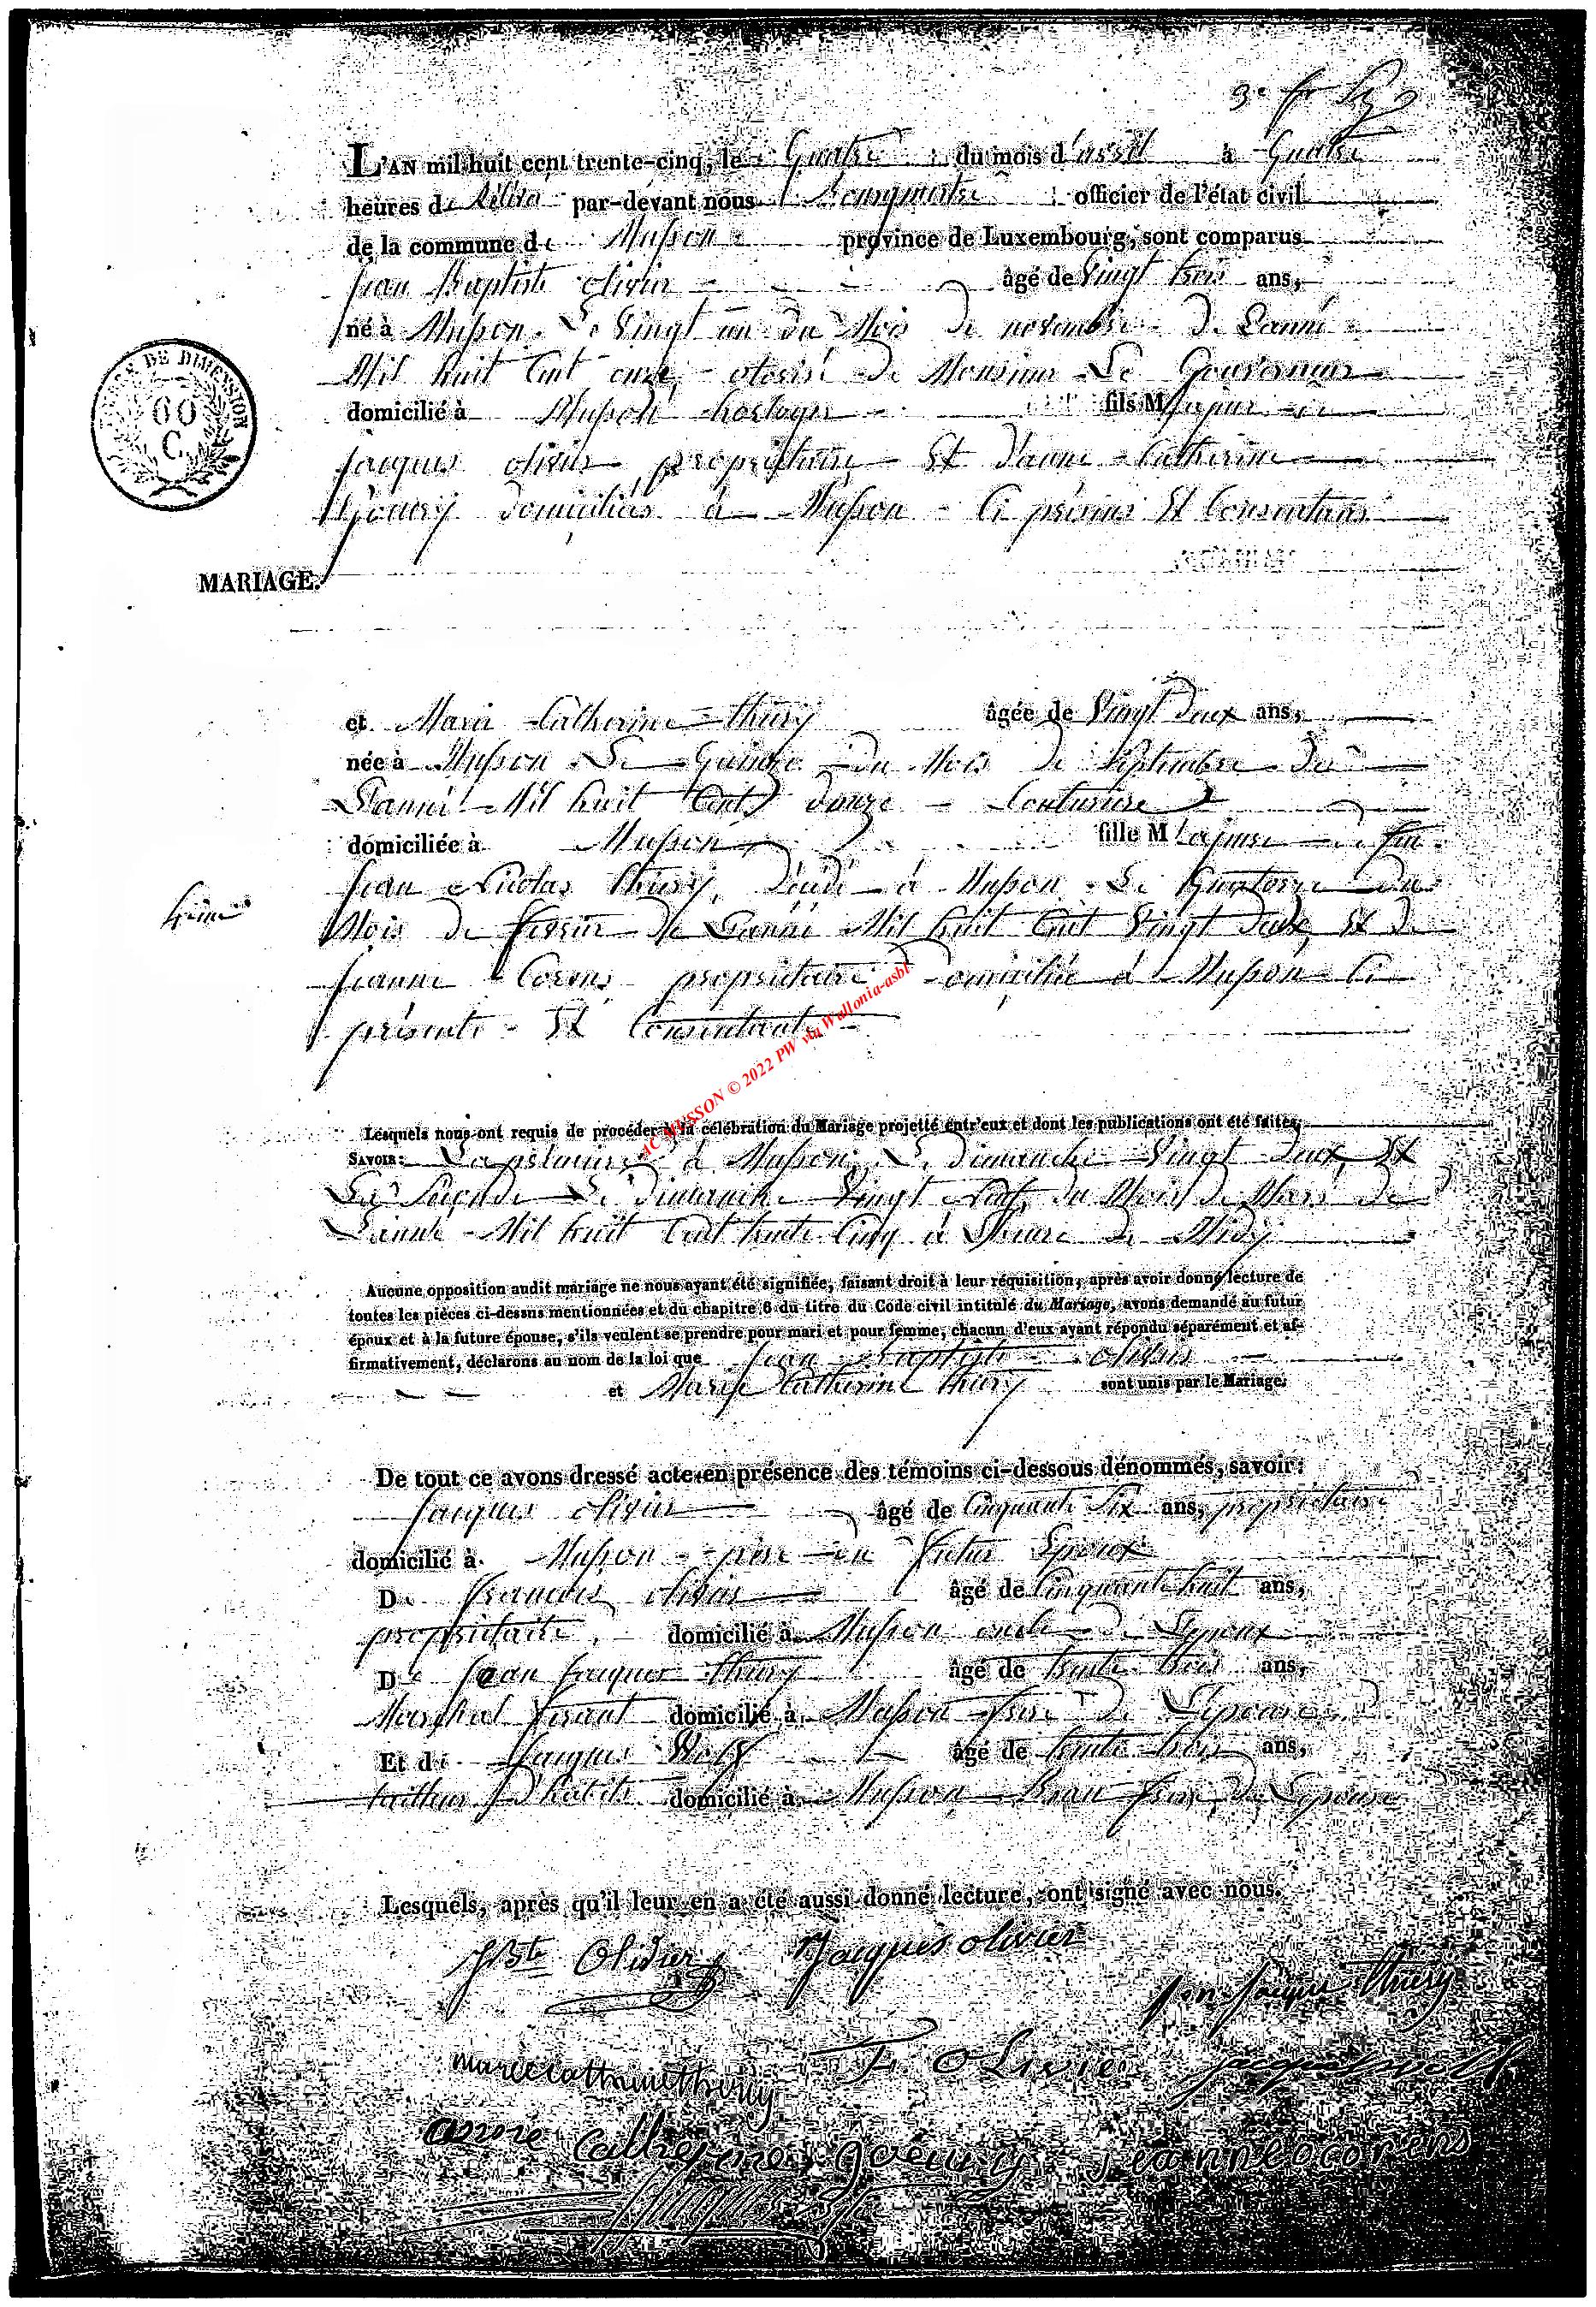 L'AN mil huit cent trente-cinq, le Quatre du mois d'avril à Quatre
heures de relevé par-devant nous Bourgmestre officier de l'état civil
de la commune de Musson province de Luxembourg, sont comparus
Jean Baptiste olivier âgé de Vingt trois ans,
né à Musson Le Vingt un du Mois de novembre de Lanné
Mil huit Cent onze, otorisé de Monsieur Le Gouverneur
domicilié à Musson horloger fils Majeur de
Jacques olivier propriétaire Et d'anne Catherine
Goeury domiciliés à Musson Ci présens Et Consentans
TIMBRE DE DIMENSION
60
C.
MARIAGE.
et Marie Catherine Thiry âgée de Vingt deux ans,
née à Musson Le Quinze du Mois de Septembre de
Lanné Mil huit Cent douze Couturiere
domiciliée à Musson fille Majeure de feu
Jean Nicolas Thiry, décédé à Musson Le Quatorze du
Mois de fevrier de Lanné Mil huit Cent Vingt deux, Et de
Jeanne Corens propriétaire Domiciliée à Musson Ci
présente Et Consentante
AC MUSSON © 2022 PW via Wallonia-asbl
Lesquels nous ont requis de procéder à la célébration du Mariage projetté entr'eux et dont les publications ont été faites,
SAVOIR: La premiere à Musson Le dimanche Vingt deux, Et
La Seconde Le dimanche Vingt Neuf du Mois de Mars de
Lanné Mil huit Cent trente Cinq à Lheure de Midy
Aucune opposition audit mariage ne nous ayant été signifiée, faisant droit à leur réquisition, après avoir donné lecture de
toutes les pièces ci-dessus mentionnées et du chapitre 6 du titre du Code civil intitulé du Mariage, avons demandé au futur
époux et à la future épouse, s'ils veulent se prendre pour mari et pour femme, chacun d'eux ayant répondu séparément et af-
firmativement, déclarons au nom de la loi que Jean Baptiste olivier
et Marie Catherine Thiry sont unis par le Mariage.
De tout ce avons dressé acte en présence des témoins ci-dessous dénommés, savoir:
Jacques olivier âgé de Cinquante Six ans, propriétaire
domicilié à Musson père du Futur Epoux
De Francois olivier âgé de Cinquante huit ans,
propriétaire, domicilié à Musson oncle de Lépoux
De Jean Jacques Thiry âgé de trente trois ans,
Marchal ferant domicilié à Musson frere de Lépouse
Et de Jacques Wolf âgé de trente trois ans,
tailleur d'habits domicilié à Musson Beau frere de Lépouse
Lesquels, après qu'il leur en a été aussi donné lecture, ont signé avec nous.
JBte Olivier Jacques olivier
Jean Jacque Thiery
marie catherine Thiry F. OLivier jacques wolf
anne Catherine goeury jeanne corens